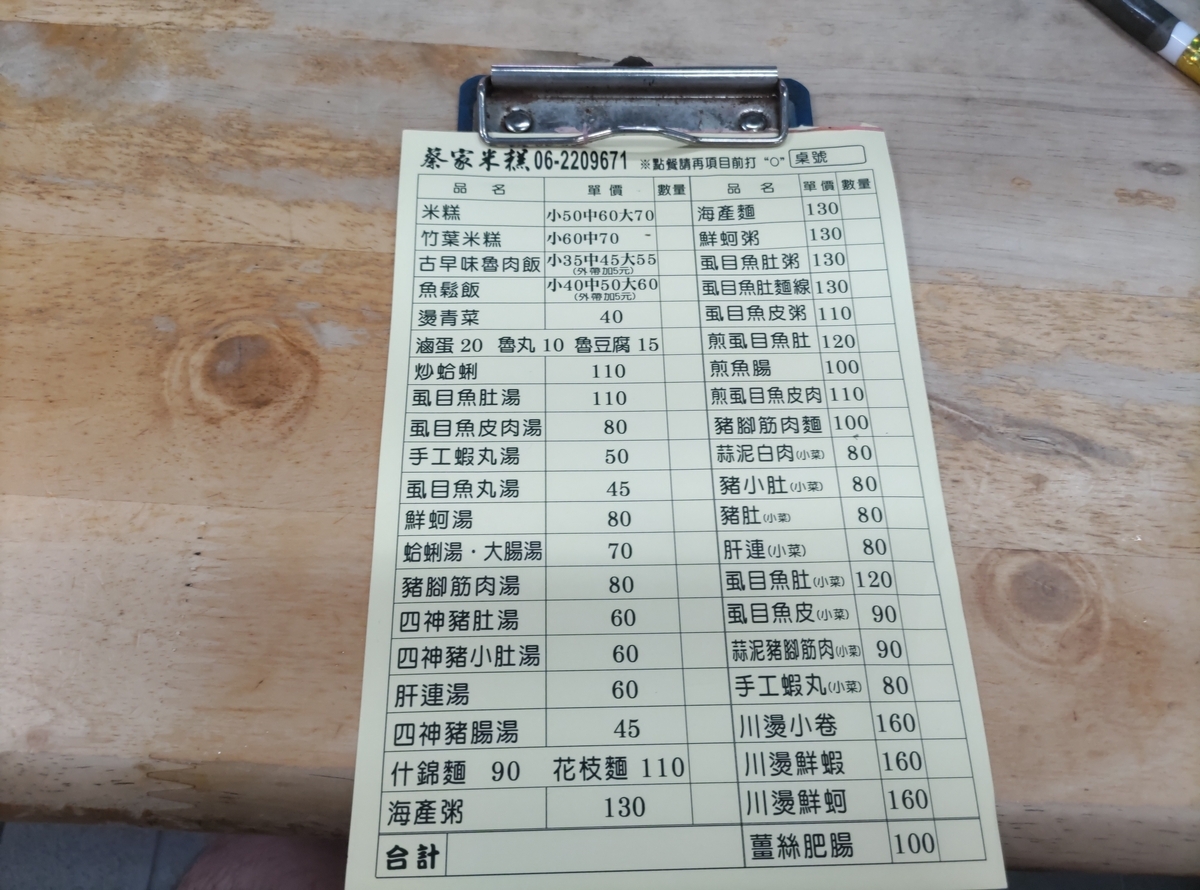 蔡家米糕 06-2209671 ※點餐請再項目前打"O" 桌號
品名 單價 數量 品名 單價 數量
米糕 小50中60大70 海產麵 130
竹葉米糕 小60中70 鮮蚵粥 130
古早味魯肉飯 小35中45大55 (外帶加5元) 虱目魚肚粥 130
魚鬆飯 小40中50大60 (外帶加5元) 虱目魚肚麵線 130
燙青菜 40 虱目魚皮粥 110
滷蛋 20 魯丸 10 魯豆腐 15 煎虱目魚肚 120
炒蛤蜊 110 煎魚腸 100
虱目魚肚湯 110 煎虱目魚皮肉 110
虱目魚皮肉湯 80 豬腳筋肉麵 100
手工蝦丸湯 50 蒜泥白肉(小菜) 80
虱目魚丸湯 45 豬小肚(小菜) 80
鮮蚵湯 80 豬肚(小菜) 80
蛤蜊湯・大腸湯 70 肝連(小菜) 80
豬腳筋肉湯 80 虱目魚肚(小菜) 120
四神豬肚湯 60 虱目魚皮(小菜) 90
四神豬小肚湯 60 蒜泥豬腳筋肉(小菜) 90
肝連湯 60 手工蝦丸(小菜) 80
四神豬腸湯 45 川燙小卷 160
什錦麵 90 花枝麵 110 川燙鮮蝦 160
海產粥 130 川燙鮮蚵 160
合計 薑絲肥腸 100